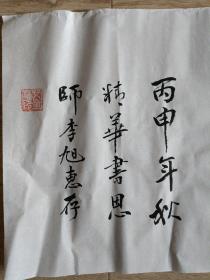 丙申年秋
精華書恩
師李旭惠存